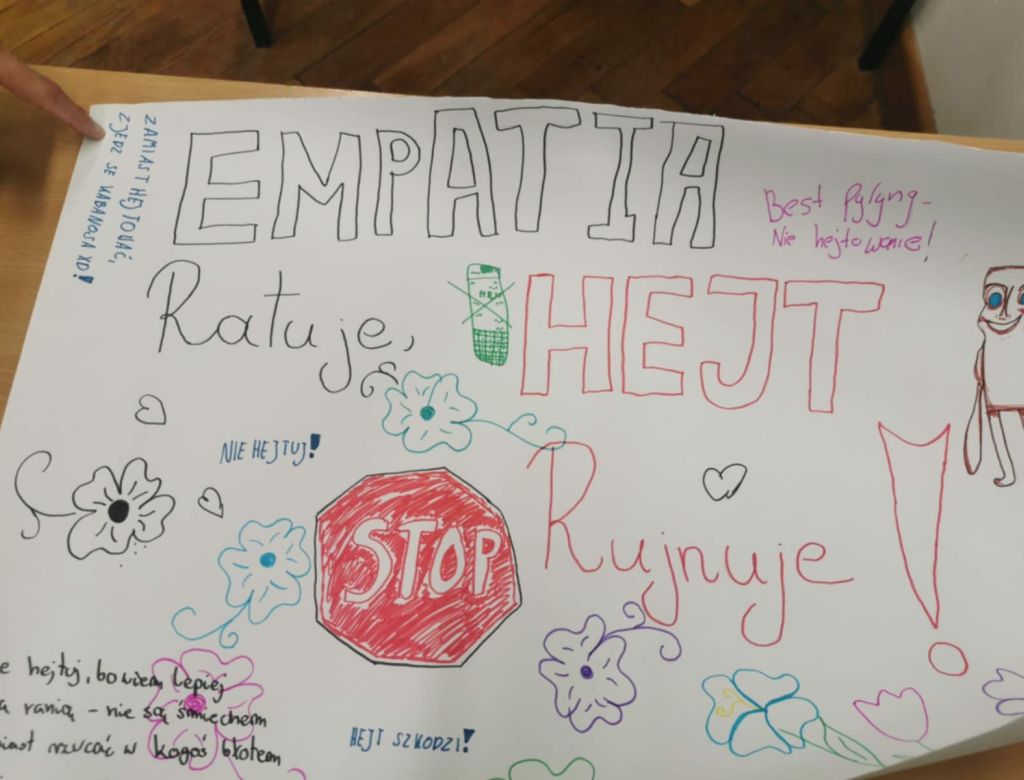 ZAMIAST HEJTOWAĆ,
ZJEDZ SE KABANOSA XD!
EMPATIA
Best Pylyng-
Nie hejtowanie!
Ratuje,
HEJT
HEJT
NIE HEJTUJ!
STOP
Rujnuje!
e hejtuj, bowiem lepiej
a ranią - nie są śmiechem
miast rzucać w kogoś błotem
HEJT SZKODZI!